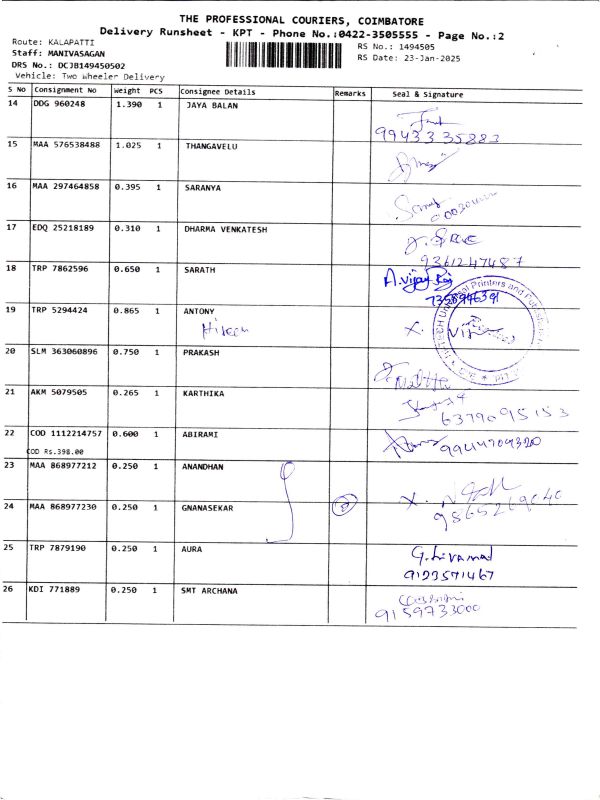 THE PROFESSIONAL COURIERS, COIMBATORE
Delivery Runsheet - KPT - Phone No.:0422-3505555 - Page No.:2
Route: KALAPATTI
RS No.: 1494505
Staff: MANIVASAGAN
RS Date: 23-Jan-2025
DRS No.: DCJB149450502
Vehicle: Two Wheeler Delivery
S No Consignment No Weight PCS Consignee Details Remarks Seal & Signature
14 DDG 960248 1.390 1 JAYA BALAN
9943335883
15 MAA 576538488 1.025 1 THANGAVELU
16 MAA 297464858 0.395 1 SARANYA
17 EDQ 25218189 0.310 1 DHARMA VENKATESH
9361247487
18 TRP 7862596 0.650 1 SARATH
A.Vijay Raj
7358946391
19 TRP 5294424 0.865 1 ANTONY
20 SLM 363060896 0.750 1 PRAKASH
21 AKM 5079505 0.265 1 KARTHIKA
6379095153
22 COD 1112214757 0.600 1 ABIRAMI
9944704320
COD Rs.398.00
23 MAA 868977212 0.250 1 ANANDHAN
24 MAA 868977230 0.250 1 GNANASEKAR
25 TRP 7879190 0.250 1 AURA
9123571467
26 KDI 771889 0.250 1 SMT ARCHANA
9159733000